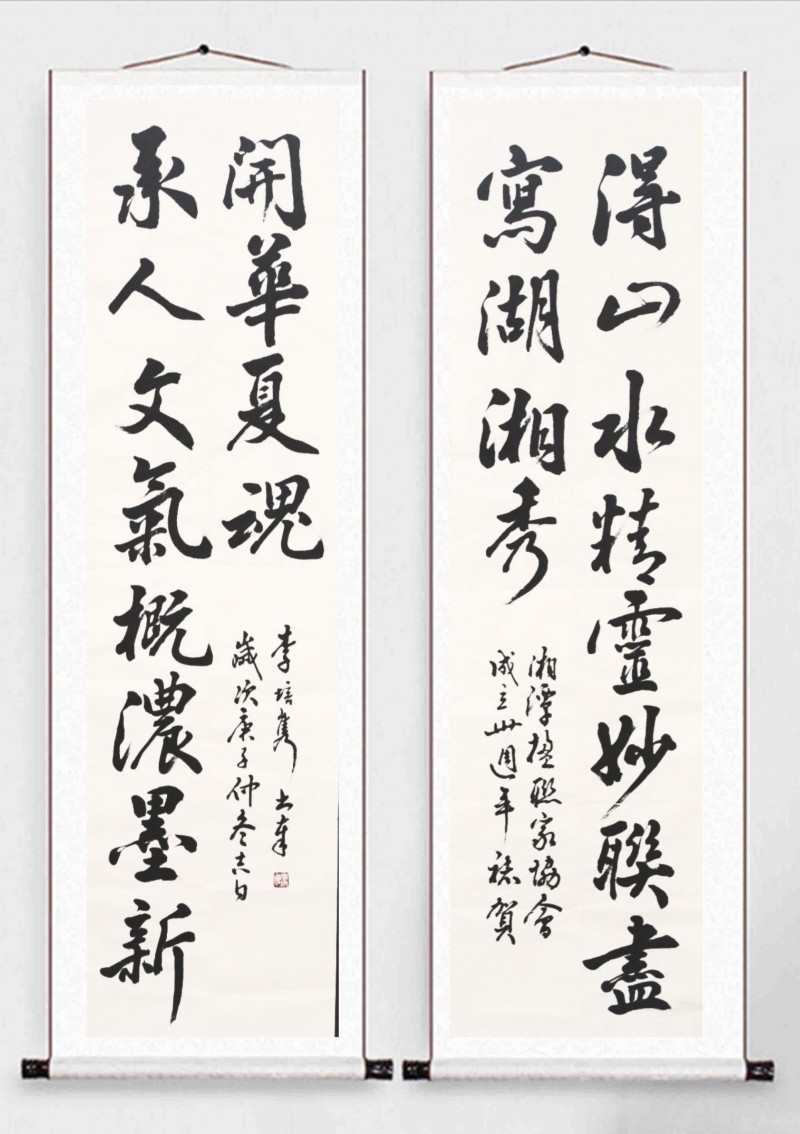 得山水精靈妙聯盡
寫湖湘秀
湘潭楹聯家協會
成立卅週年誌賀
承人文氣概濃墨新
開華夏魂
歲次庚子仲冬吉日
李培隽书奉